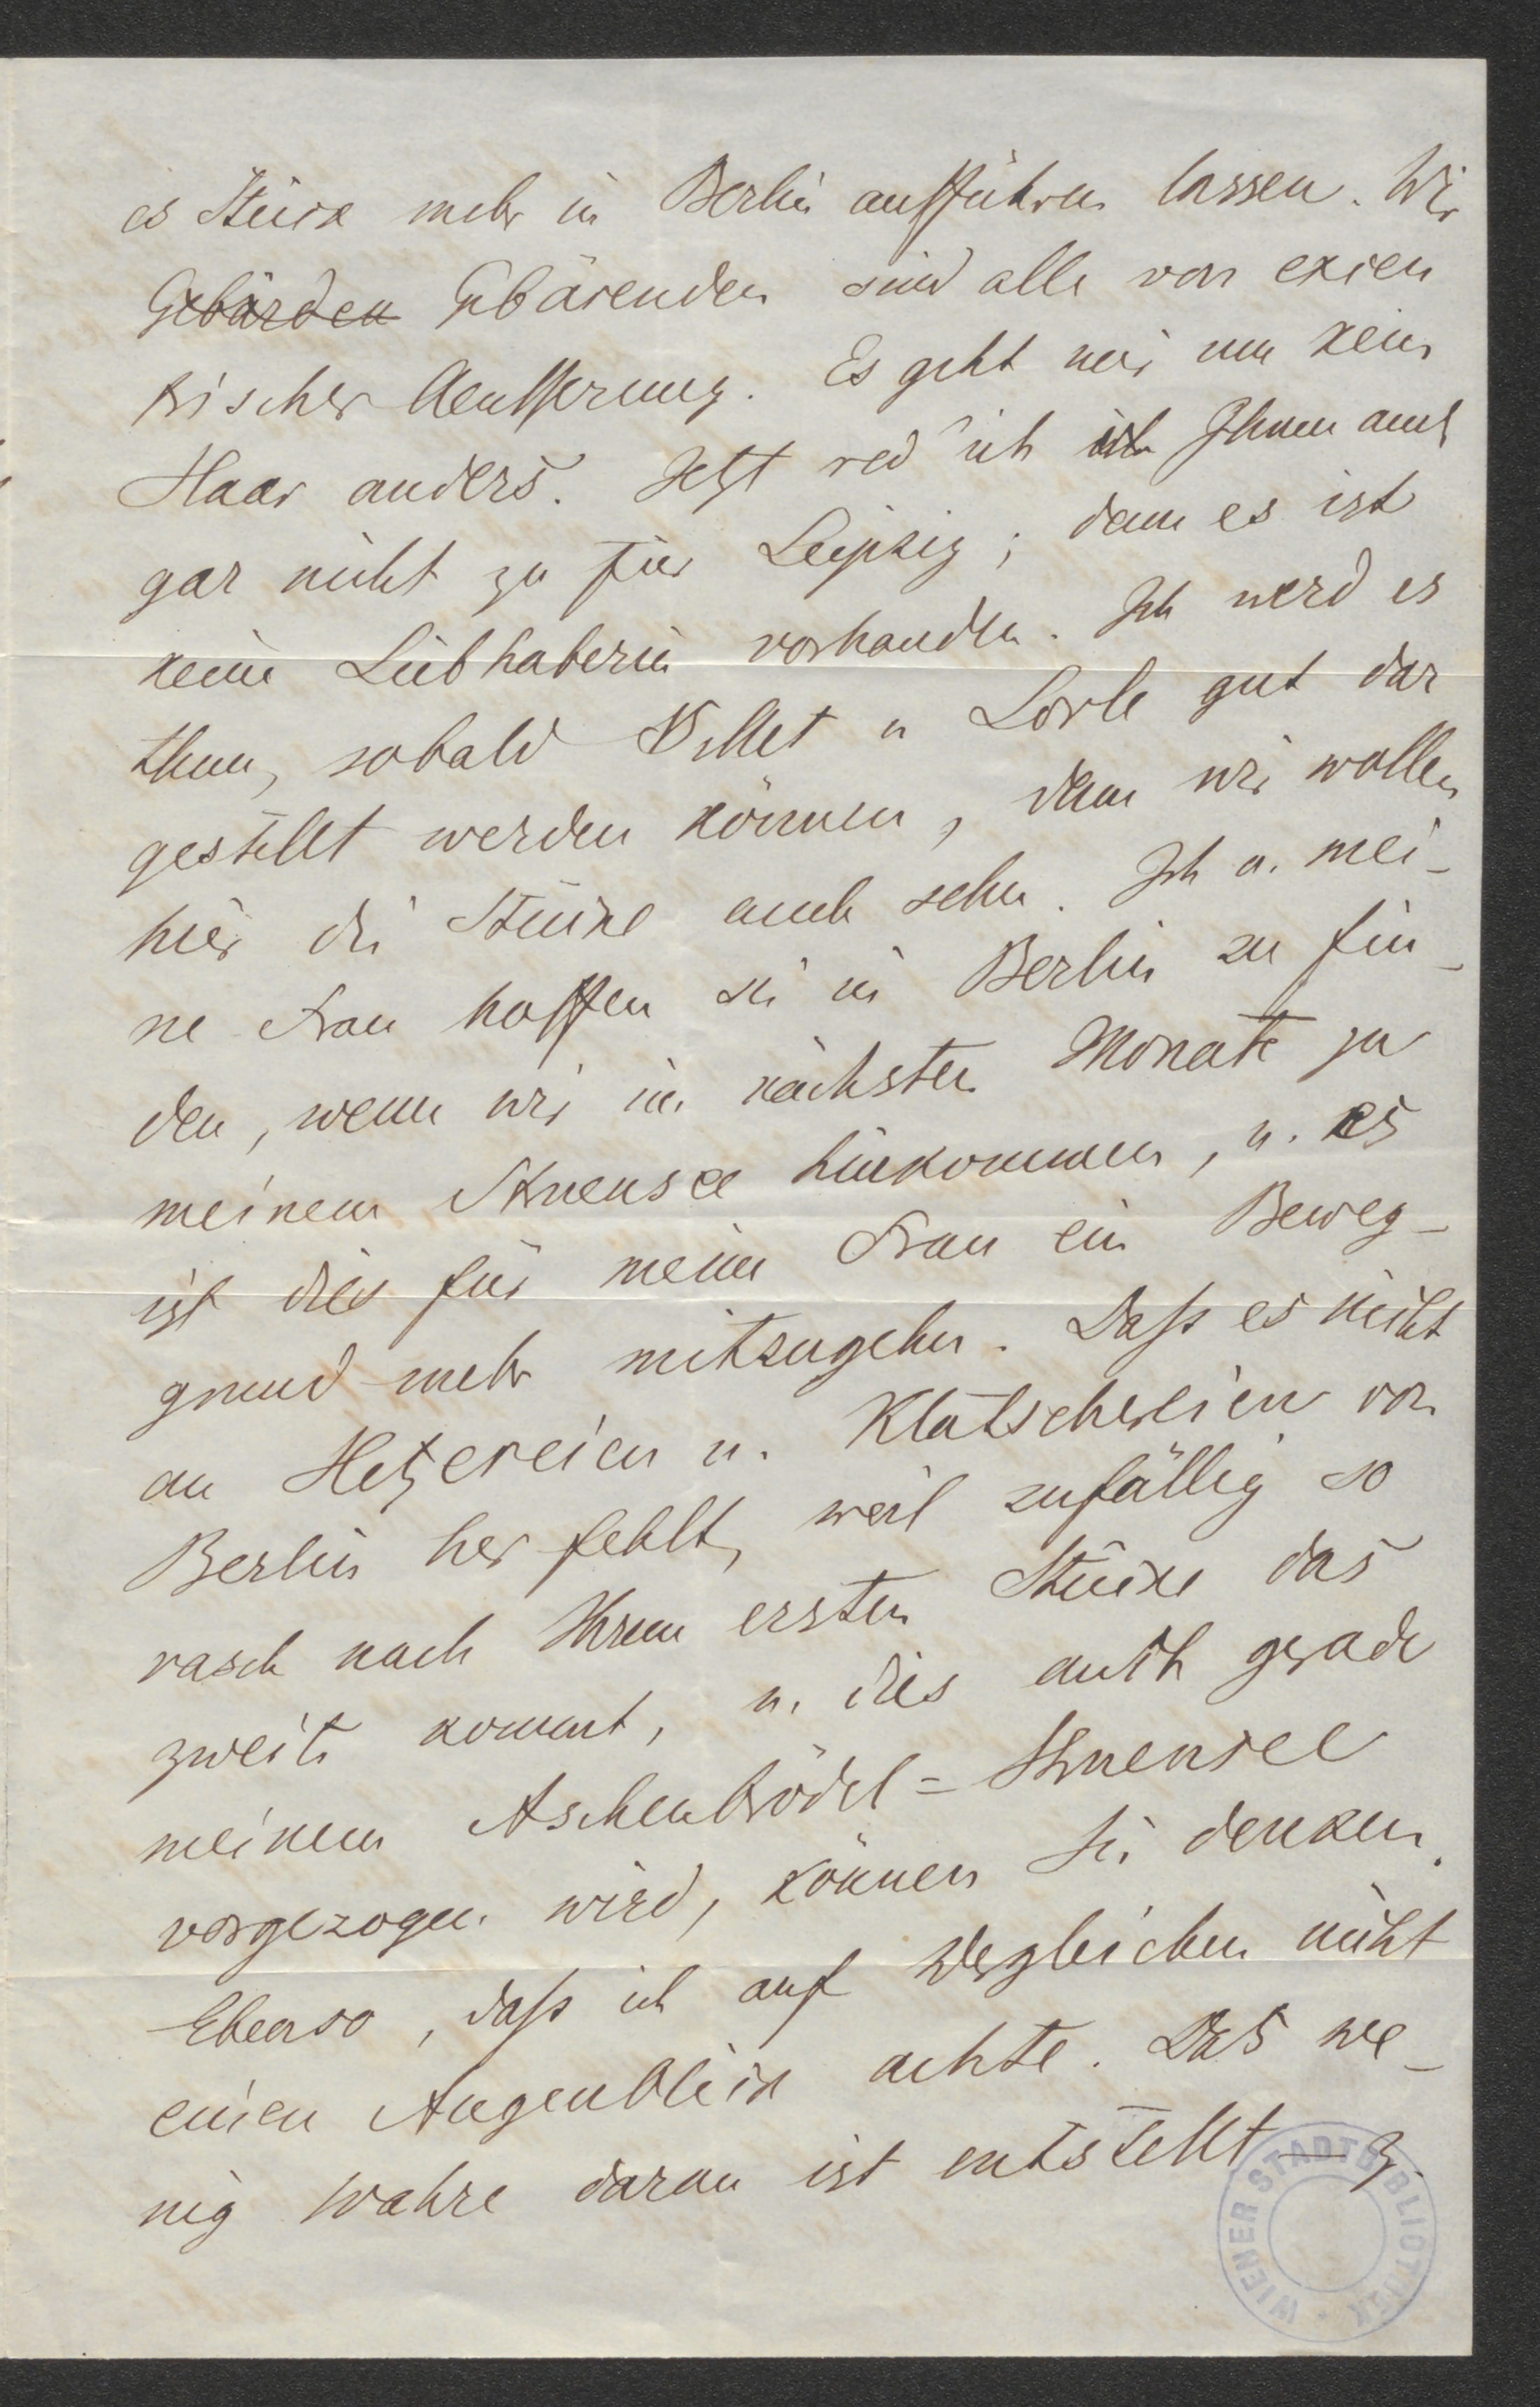 es Stück mehr in Berlin aufführen lassen. Wir
Gebärden Gebärenden sind alle von excen
trischer Aeusserung. Es geht mir um kein
Haar anders. Jetzt red ich ich Ihnen auch
gar nicht zu für Leipzig; denn es ist
keine Liebhaberin vorhanden. Ich werd es
thun, sobald Billet u Lorle gut dar
gestellt werden können, denn wir wollen
hier die Stücke auch sehn. Ich u. mei-
ne Frau hoffen Sie in Berlin zu fin-
den, wenn wir im nächsten Monate zu
meinem Struensee hinkommen, u. es
ist dies für meine Frau ein Beweg-
grund mehr mitzugehn. Daß es nicht
an Hetzereien u. Klatschereien von
Berlin her fehlt, weil zufällig so
rasch nach Ihrem ersten Stücke das
zweite kommt, u. dies auch gerade
meinem Aschenbrödel=Struensee
vorgezogen wird, können Sie denken.
Ebenso, daß ich auf dergleichen nicht
einen Augenblick achte. Das we-
nig Wahre daran ist entstellt — z.
WIENER STADTBIBLIOTHEK